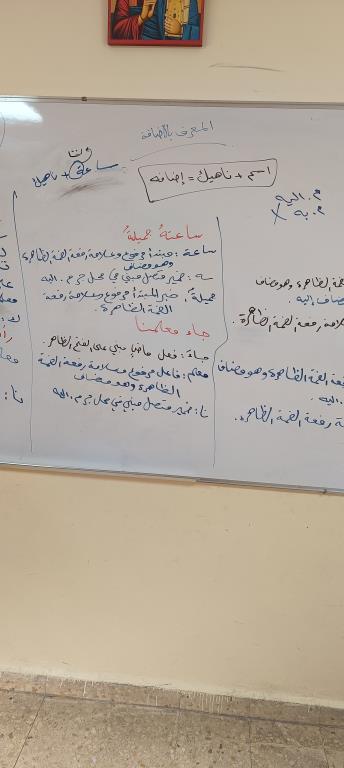 المعرف بالإضافة
ساعة + ناهيك
ت
اسم + ناهيك = إضافة
م. اليه
م. به X
ساعتهُ جميلةُ
ساعة: مبتدأ مرفوع وعلامة رفعه الضمة الظاهرة
وهو مضاف
ـه: ضمير متصل مبني في محل جر م. اليه
جميلةُ: خبر المبتدأ مرفوع وعلامة رفعه
الضمة الظاهرة.
جاء معلمنا
جاءَ: فعل ماضٍ مبني على الفتح الظاهر.
معلم: فاعل مرفوع وعلامة رفعه الضمة
الظاهرة وهو مضاف
نا: ضمير متصل مبني في محل جر م. اليه
الظاهرة وهو مضاف
مضاف اليه.
علامة رفعه الضمة الظاهرة.
رفعه الضمة الظاهرة وهو مضاف
اليه.
رفعه الضمة الظاهرة.
نا: